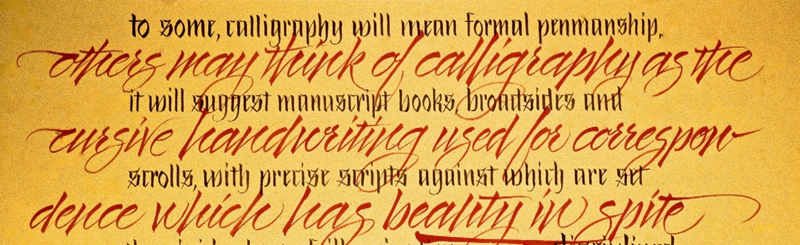 to some, calligraphy will mean formal penmanship,
others may think of calligraphy as the
it will suggest manuscript books, broadsides and
cursive handwriting used for correspon-
scrolls, with precise scripts against which are set
dence which has beality in spite